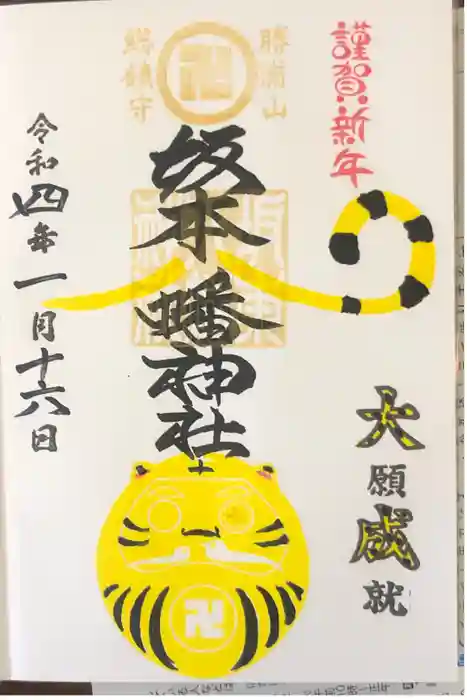 謹賀新年
大願成就
勝浦山
卍
総鎮守
坂本八幡神社
卍
令和四年一月十六日